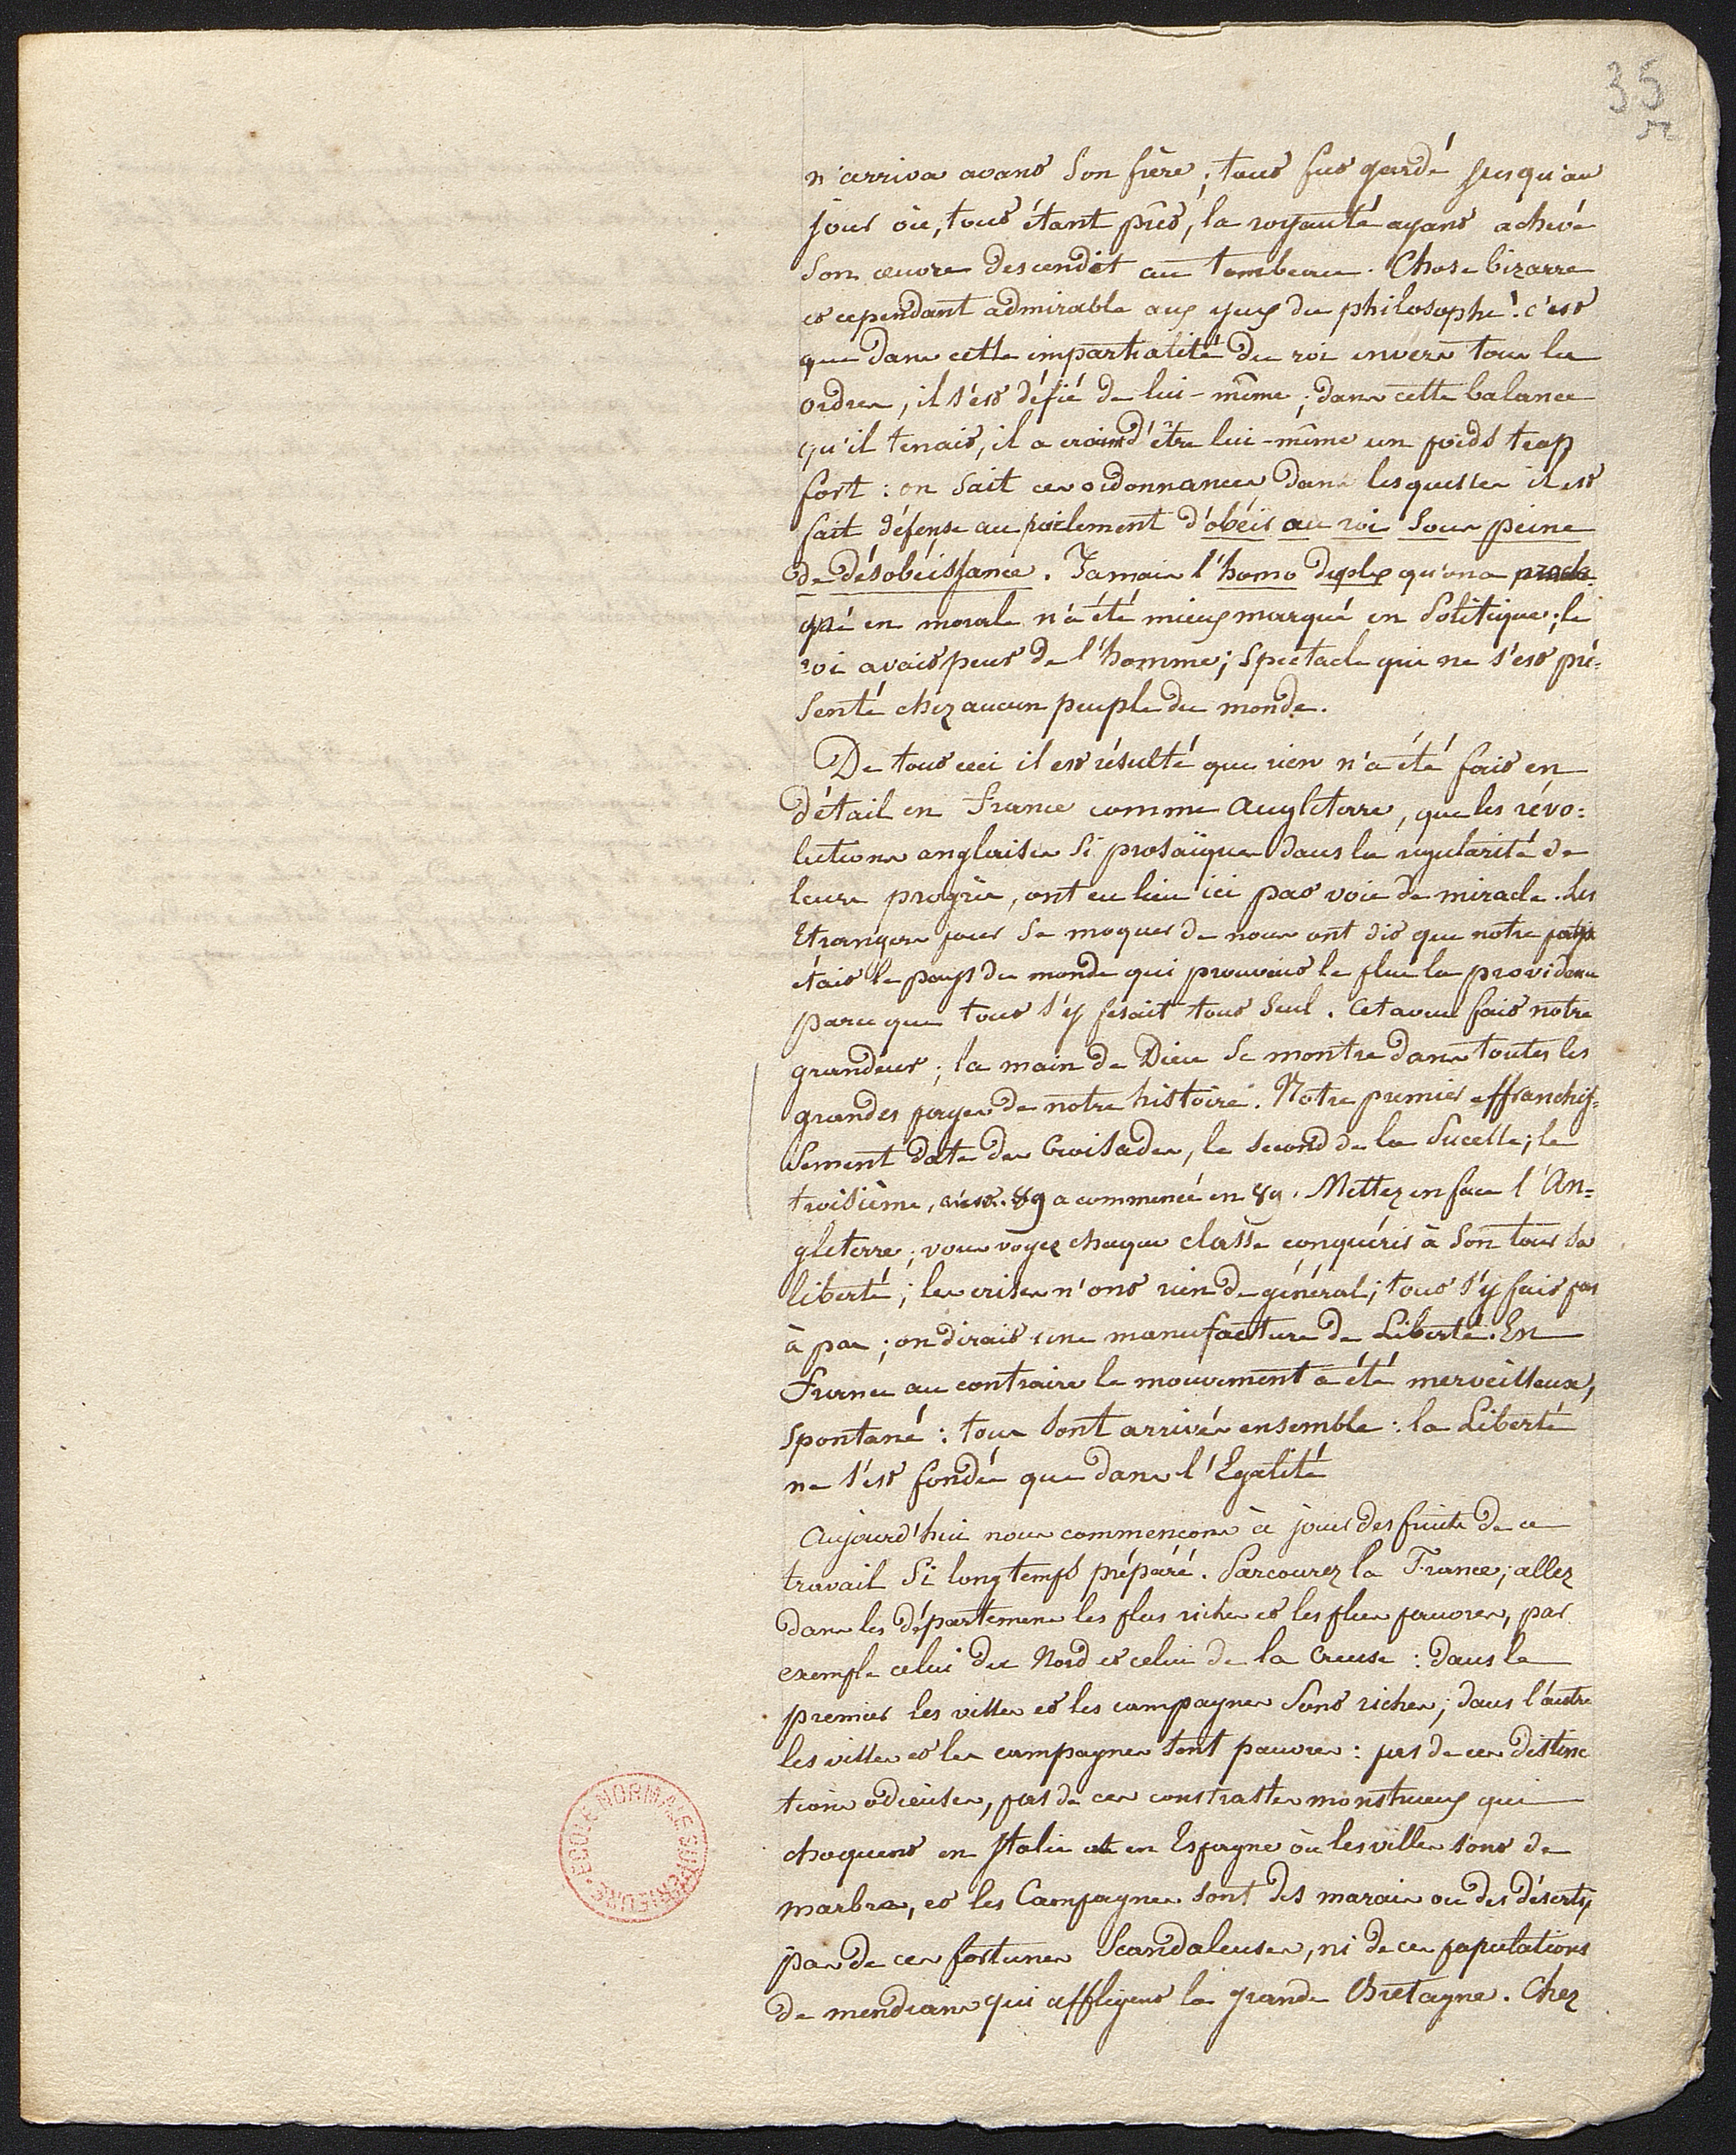 35
52
n'arriva avant son frère; tout fut gardé jusqu'au
jour où, tout étant prêt, la royauté ayant achevé
son œuvre descendit au tombeau. Chose bizarre
et cependant admirable aux yeux du philosophe! c'est
que dans cette impartialité du roi envers tous les
ordres, il s'est défié de lui-même; dans cette balance
qu'il tenait, il a craint d'être lui-même un poids trop
fort: on sait ces ordonnances dans lesquelles il est
fait défense au parlement d'obéir au roi sous peine
de désobéissance. Jamais l'homo duplex qu'on a
en morale n'a été mieux marqué en politique; le
roi avait peur de l'homme; spectacle qui ne s'est pré=
senté chez aucun peuple du monde.
De tout ceci il est résulté que rien n'a été fait en
détail en France comme Angleterre, que les révo=
lutions anglaises si prosaïques dans la régularité de
leurs progrès, ont eu lieu ici par voie de miracle. Les
Etrangers pour se moquer de nous ont dit que notre pays
était le pays du monde qui prouvait le plus la providence
parce que tout s'y fesait tout seul. Cet aveu fait notre
grandeur; la main de Dieu se montre dans toutes les
grandes pages de notre histoire. Notre premier affranchis=
sement date des Croisades, le second de la Pucelle; le
troisième, 89 a commencé en 89. Mettez en face l'An=
gleterre; vous voyez chaque classe conquérir à son tour sa
liberté; les crises n'ont rien de général; tout s'y fait pas
à pas; on dirait une manufacture de Liberté. En
France au contraire le mouvement a été merveilleux,
spontané: tous sont arrivés ensemble: la Liberté
ne s'est fondée que dans l'Egalité
Aujourd'hui nous commençons à jouir des fruits de ce
travail si longtemps préparé. Parcourez la France; allez
dans les départemens les plus riches et les plus pauvres, par
exemple celui du Nord et celui de la Creuse: dans le
premier les villes et les campagnes sont riches; dans l'autre
les villes et les campagnes sont pauvres: pas de ces distinc
tions odieuses, pas de ces constrastes monstrueux qui
choquent en Italie et en Espagne où les villes sont de
marbre, et les Campagnes sont des marais ou des déserts,
pas de ces fortunes scandaleuses, ni de ces populations
de mendians qui affligent la grande Bretagne. Chez
ECOLE NORMALE SUPERIEURE